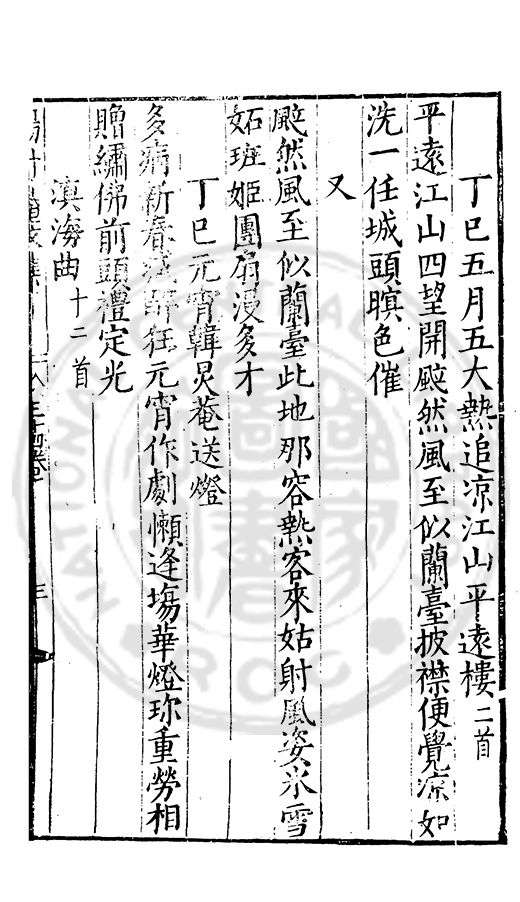 丁巳五月五大熱追凉江山平遠樓二首
平遠江山四望開颯然風至似蘭臺披襟便覺凉如
洗一任城頭暝色催
又
颯然風至似蘭臺此地那容熱客來姑射風姿氷雪
妬班姬團扇漫多才
丁巳元宵韓炅菴送燈
多病新春狂元宵作劇懶逢塲華燈珎重勞相
贈繡佛前頭禮定光
滇海曲十二首
三